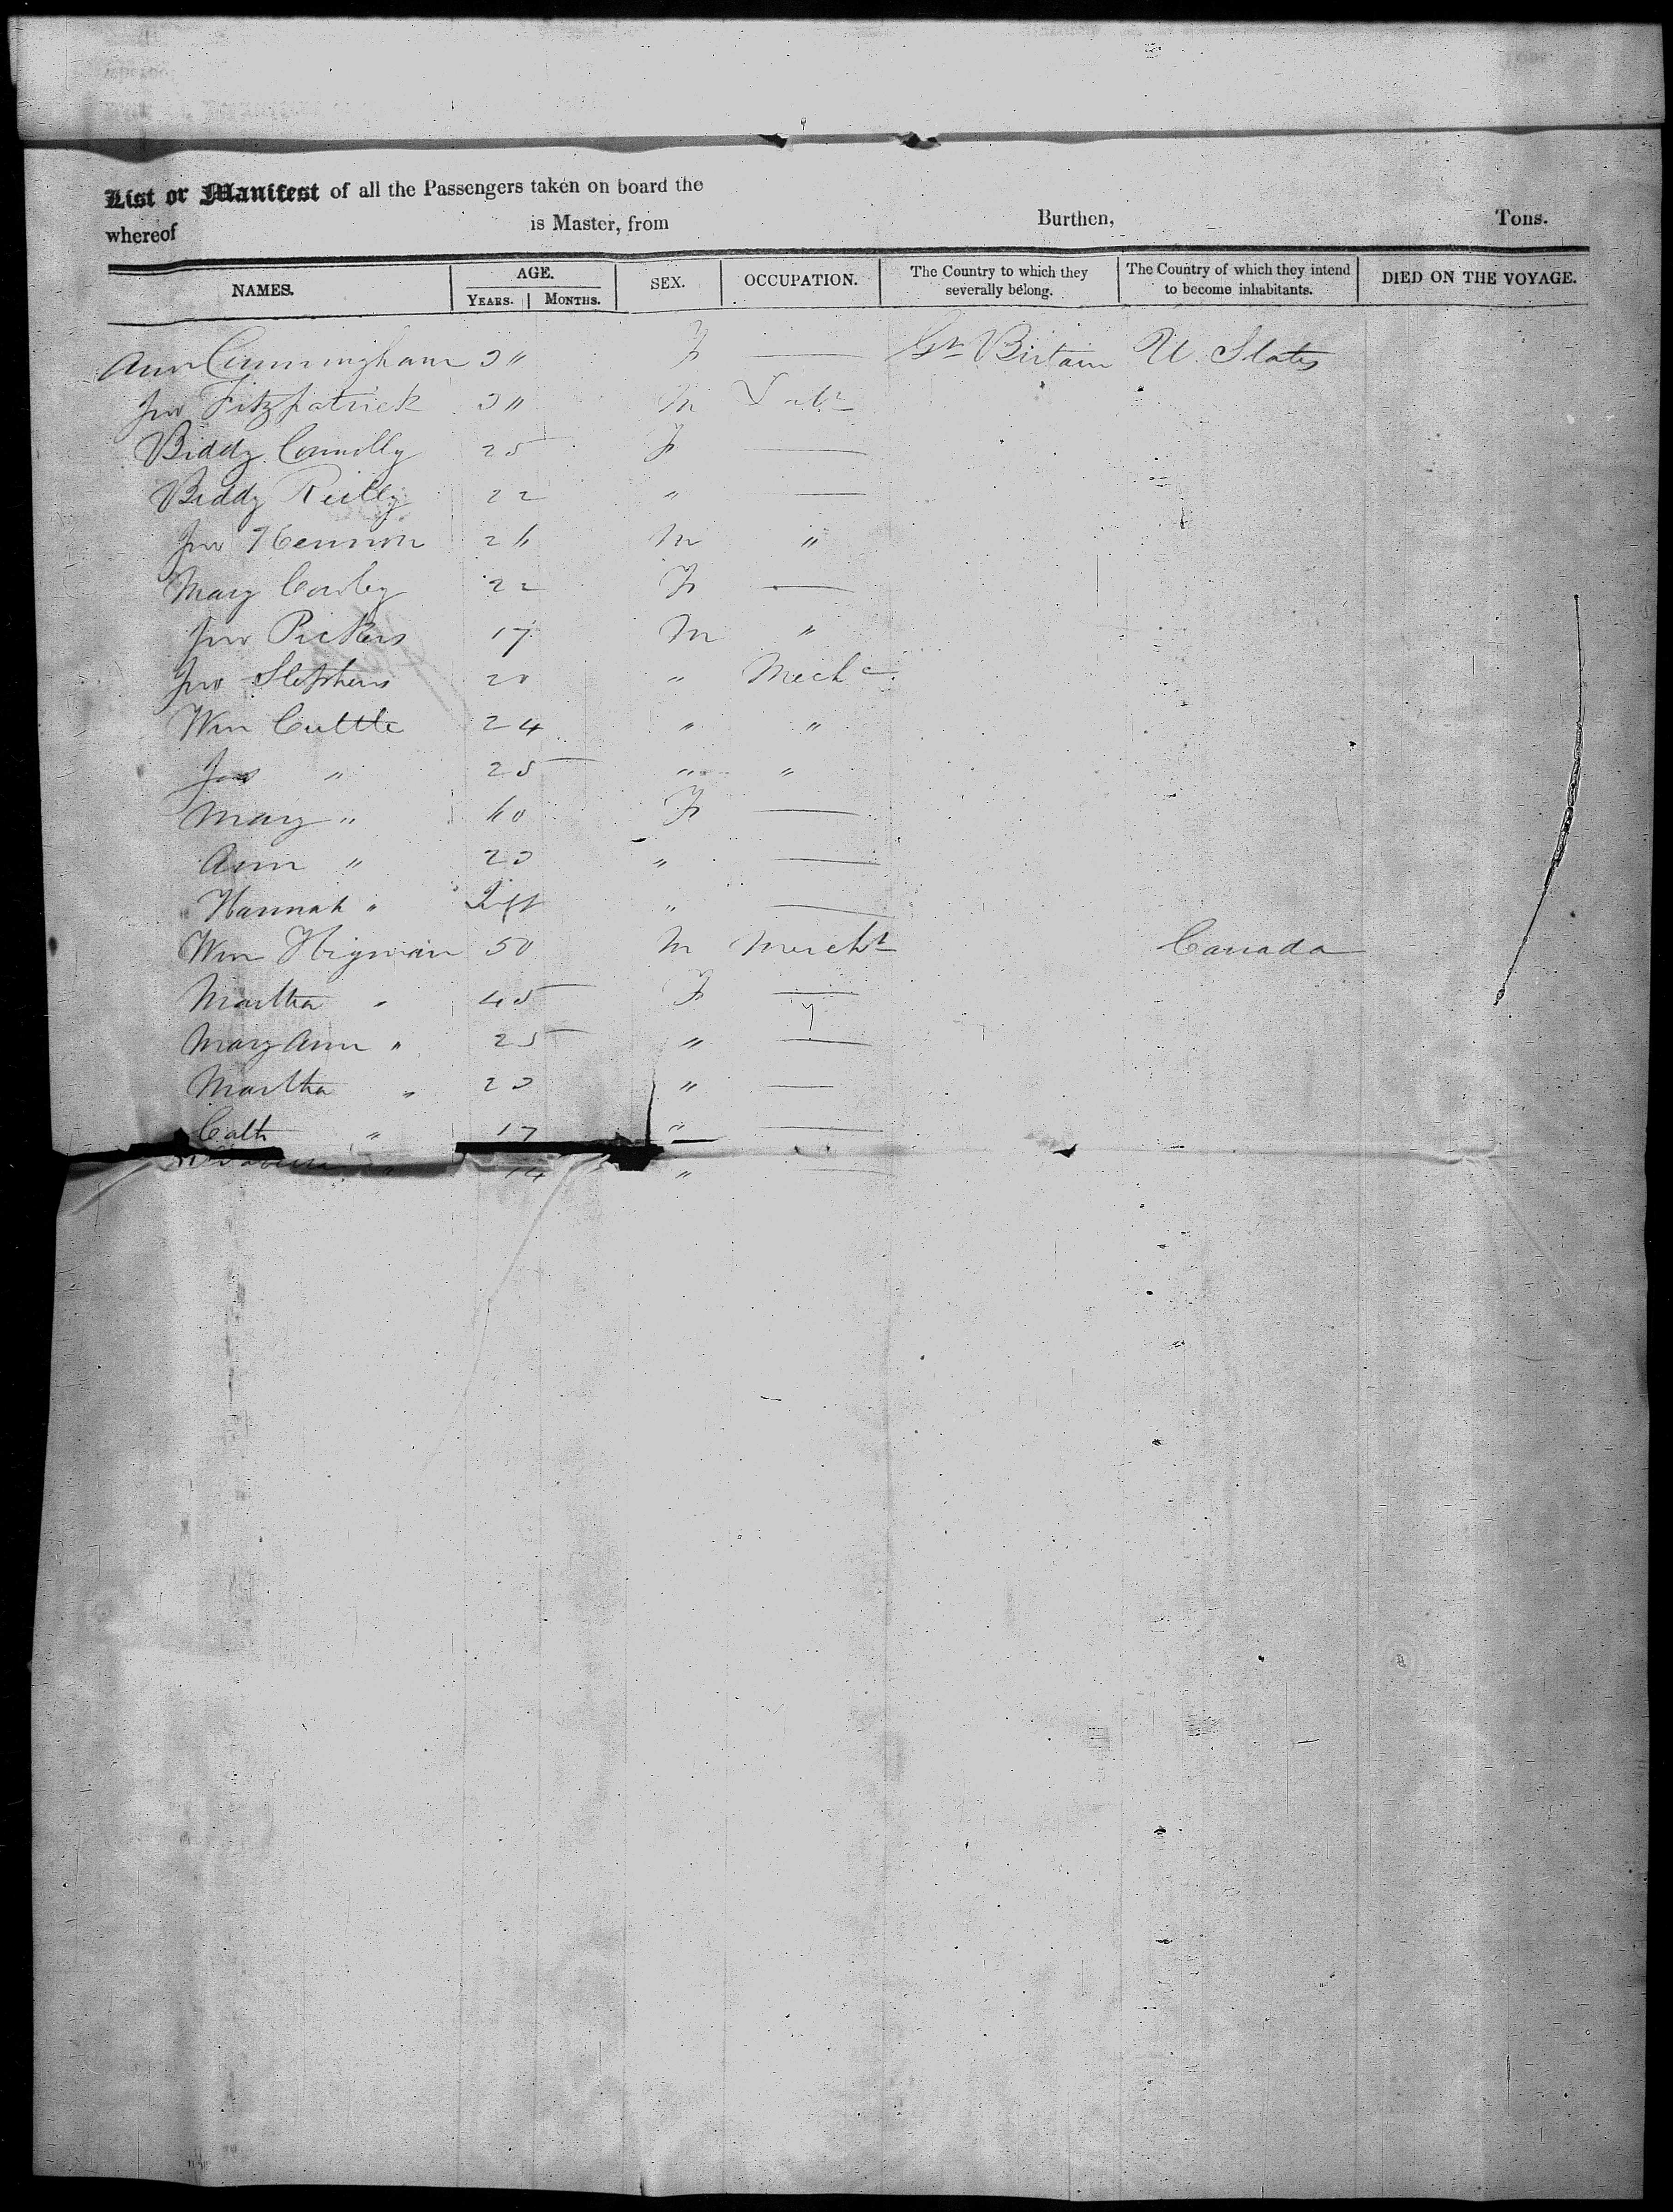 List or Manifest of all the Passengers taken on board the
whereof is Master, from Burthen, Tons.
NAMES. AGE. YEARS. MONTHS. SEX. OCCUPATION. The Country to which they severally belong. The Country of which they intend to become inhabitants. DIED ON THE VOYAGE.
Ann Cunningham F — Gt Britain U. States
Jno Fitzpatrick M Labr
Biddy Connolly 25 F —
Biddy Reilly 22 " —
Jno M "
Mary 22 F —
Jno 17 M "
Jno Stephens " Mechc
Wm Cuttle 24 " "
Jas " 25 " "
Mary " F —
Ann " 23 " —
Hannah " Inft " —
Wm Higman 50 M Mercht Canada
Martha " 45 F —
Mary Ann " 25 " —
Martha " 23 " —
Cath " 17 " —
" 14 " —